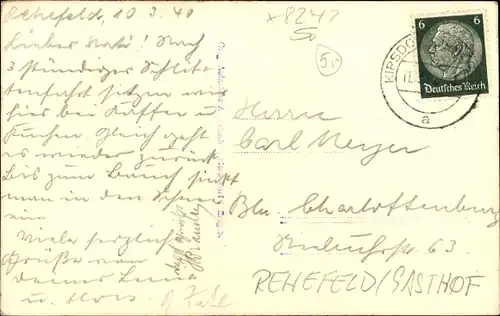 Rehefeld, 10.3.40
Lieber Nati! Nach
3 stündiger Schlit-
tenfahrt sitzen wir
hier bei Kaffee u.
Kuchen. Gleich geht
es wieder zurück.
Bis zum Bauch sinkt
man in den Schnee
ein
Viele herzliche
Grüße von
deiner
u.
x8247
5,-
KIPSDO
a
6 6
Deutsches Reich
Herrn
Carl Meyer
Bln. Charlottenburg
63.
REHEFELD/GASTHOF